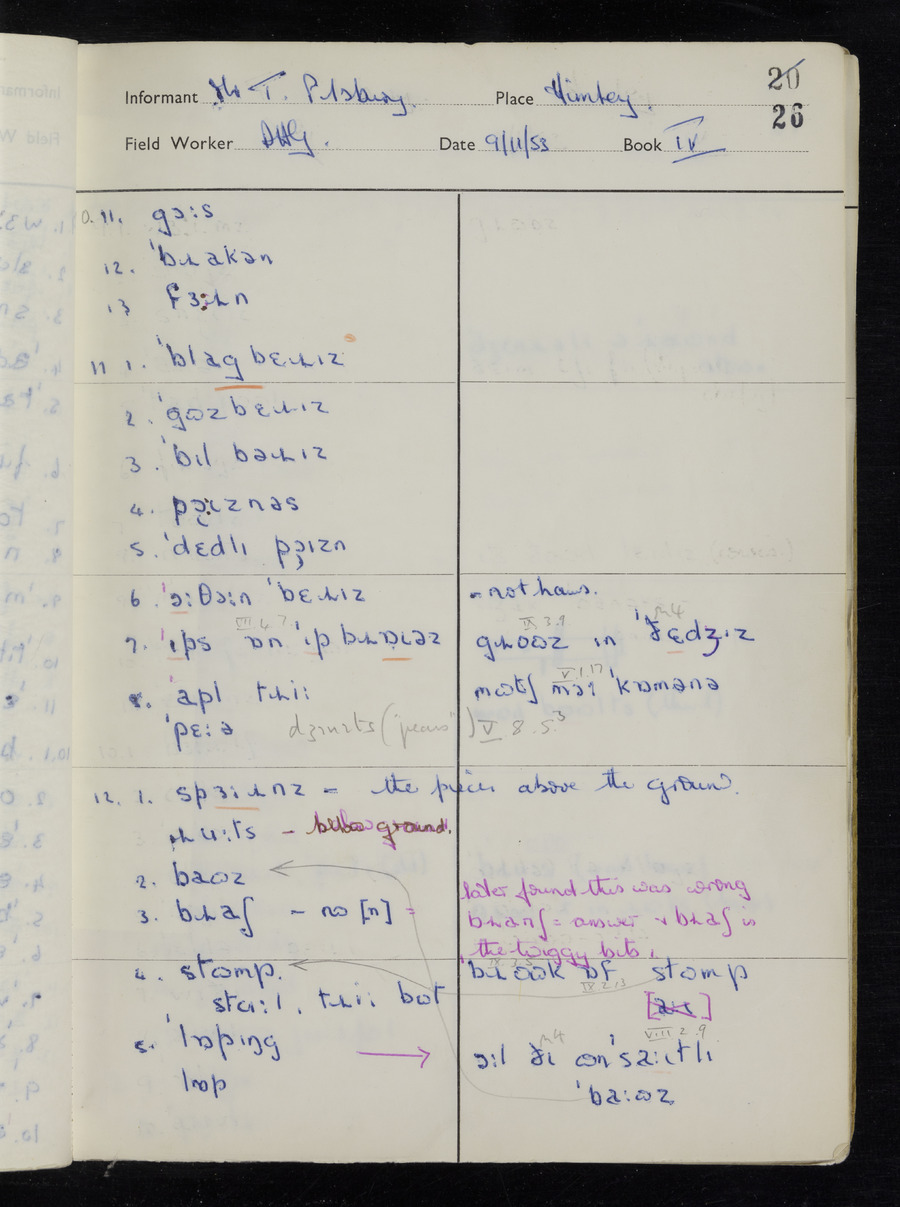 Informant Mr T. Pilsbury. Place Himley.
20
26
Field Worker Date 9/11/53 Book IV
0. 11. gɔːs
12. ˈbɹakən
13 fɜːɹn
11 1. ˈblagbɛɹɪz
2. ˈgɷzbɛɹɪz
3. ˈbɪl bəɹɪz
4. pɔɪznəs
5. ˈdɛdlɪ pɔɪzn
6. ˈɔːθɔːn ˈbɛɹɪz - not haws.
7. ˈɪps ɒn ˈɪp bɹɒɪəz gɹɷɷz ɪn ˈðɛdʒɪz
VIII. 4. 7 IX 3.9 n4
8. ˈapl tɹiː mɷtʃ mɔɪ ˈkɒmənə
V.1.17
ˈpɛːə dʒɪnɪts ("pears") V 8. 5
12. 1. spɜːɹnz = the pieces above the ground.
ɹuːts - below ground.
2. baɷz
3. bɹaʃ - no [n] =
later found this was wrong
bɹanʃ = answer + bɹaʃ is
the twiggy bits.
4. stɷmp. bɹɷɷk ɒf stɷmp
IX 2.13
staːl. tɹiː bɷt
5. ˈlɒpɪŋg ɔːl ðɪ ɷnˈsaːɪtlɪ
n4 VIII 2. 9
lɒp ˈbaːɷz